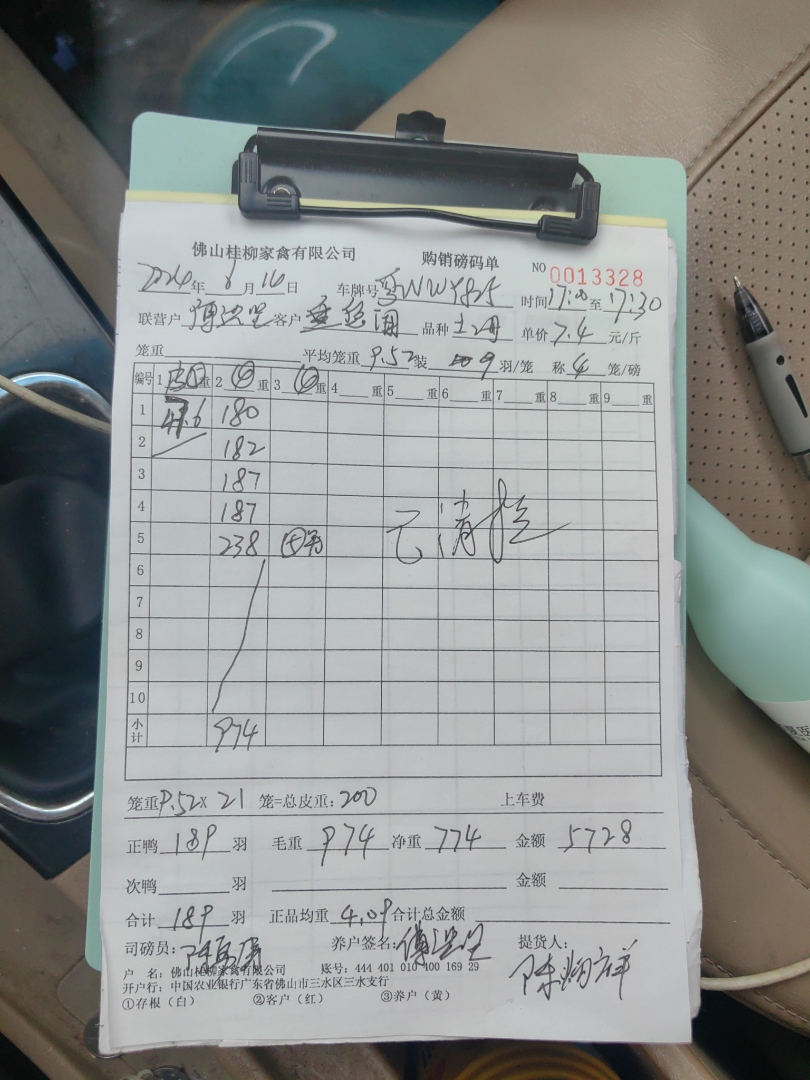 佛山桂柳家禽有限公司 购销磅码单 NO 0013328
2024年6月16日 车牌号 WWY825 时间17:00至17:30
联营户 客户 品种土 单价7.4元/斤
笼重 平均笼重9.52装9羽/笼 称4笼/磅
编号 1 重 2 重 3 重 4 重 5 重 6 重 7 重 8 重 9 重
1 47.6 180
2 182
3 187
4 187 已清
5 238 ⑤
6
7
8
9
10
小计 974
笼重9.52×21笼=总皮重:200 上车费
正鸭189羽 毛重974净重774 金额5728
次鸭 羽 金额
合计189羽 正品均重4.09合计总金额
司磅员:陈 养户签名: 提货人:陈炳祥
户 名:佛山桂柳家禽有限公司 账号:444 401 010 400 169 29
开户行:中国农业银行广东省佛山市三水区三水支行
①存根(白) ②客户(红) ③养户(黄)